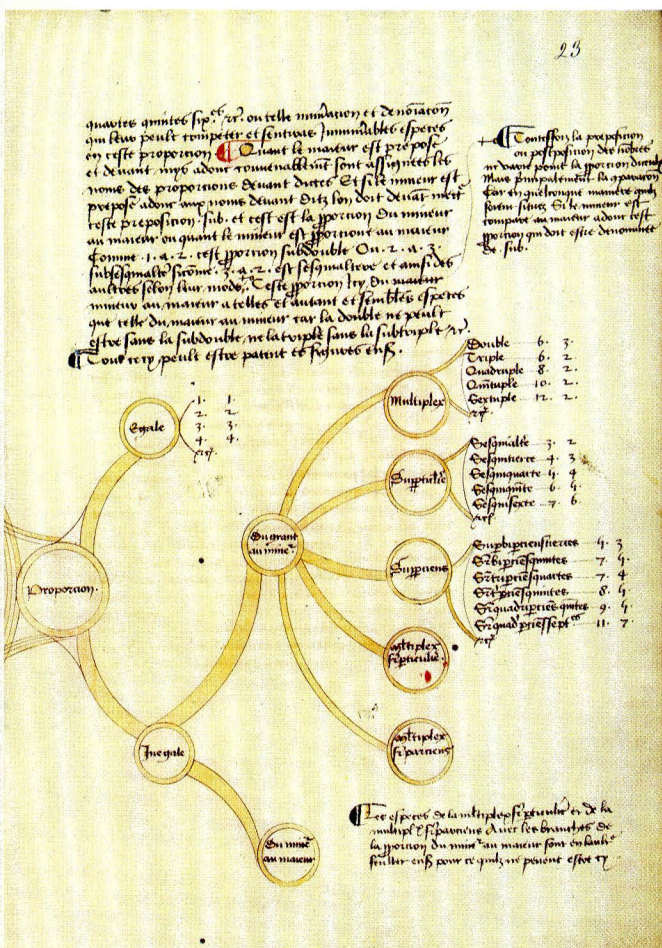 23
quartes quintes six.es &c. ou telle num̄acion et denoīacōn
qui leur peult competer et sentuiuas Innum̄ables especes
en ceste proporcion Quant le maieur est prepose
et deuant mys adont conuenablem̄t sont assignees les
noms des proporcions deuant dictes Et si le mineur est
prepose adont aux noms deuant ditz lon doit deuāt mect̄
ceste preposicion .sub. et cest est la p̄porcion du mineur
au maieur ou quant le mineur est p̄porcione au maieur
Comme .1. a .2. cest p̄porcion subdouble Ou .2. a .3.
subsesquialte sicōme .3. a .2. est sesquialtere et ainsi des
aultres selon leur mode. Ceste p̄porcion Icy du maieur
mineur au maieur a telles et autant et semblēs especes
que celle du maieur au mineur car la double ne peult
estre sans la subdouble ne la triple sans la subtriple &c.
Tout cecy peult estre patent es figures ensῡ.
Toutesfoiz la preposicion
ou postposicion des nōbres
ne Mais principalment la 9paracōn
Car en quelconque maniere quilz
soient situez Si le mineur est
compare au maieur adont cest
p̄porcion qui doit estre denommee
de .sub.
Egale
1. 1.
2. 2.
3. 3.
4. 4.
&cᷓ.
Proporcion.
Inegale
Du grant au mine᷑.
Du mine᷑ au maieur.
Multiplex
Double 6. 3.
Triple 6. 2.
Quadruple 8. 2.
Qūituple 10. 2.
Sextuple 12. 2.
&cᷓ.
Sup̄ticulīe
Sesquialte 3. 2
Sesquitierce 4. 3
Sesquiquarte 5. 4
Sesquiquīte 6. 5.
Sesquisexte 7. 6
&cᷓ.
Sup̄ciens
Sup̄bip̄ciens tierces 5. 3
Sr̄bip̄ciēs quintes 7. 5
Sr̄trip̄ciēs quartes 7. 4
Sr̄t̄p̄ciēs quintes 8. 5
Sr̄quadrip̄ciēs qīntes 9. 5.
Sr̄quad̄p̄ciēs septes 11. 7
&cᷓ.
m̄ltiplex sr̄p̄ticulīe.
m̄ltiplex sr̄parciens
Les especes de la m̄ltiplex sr̄p̄ticulīe et de la
multipl᷒ sr̄parciens Auec les branches de
la p̄porcion du mine᷑ au maieur sont en lault᷑
feullet ensῡ pour ce quilz ne peuent estre cy